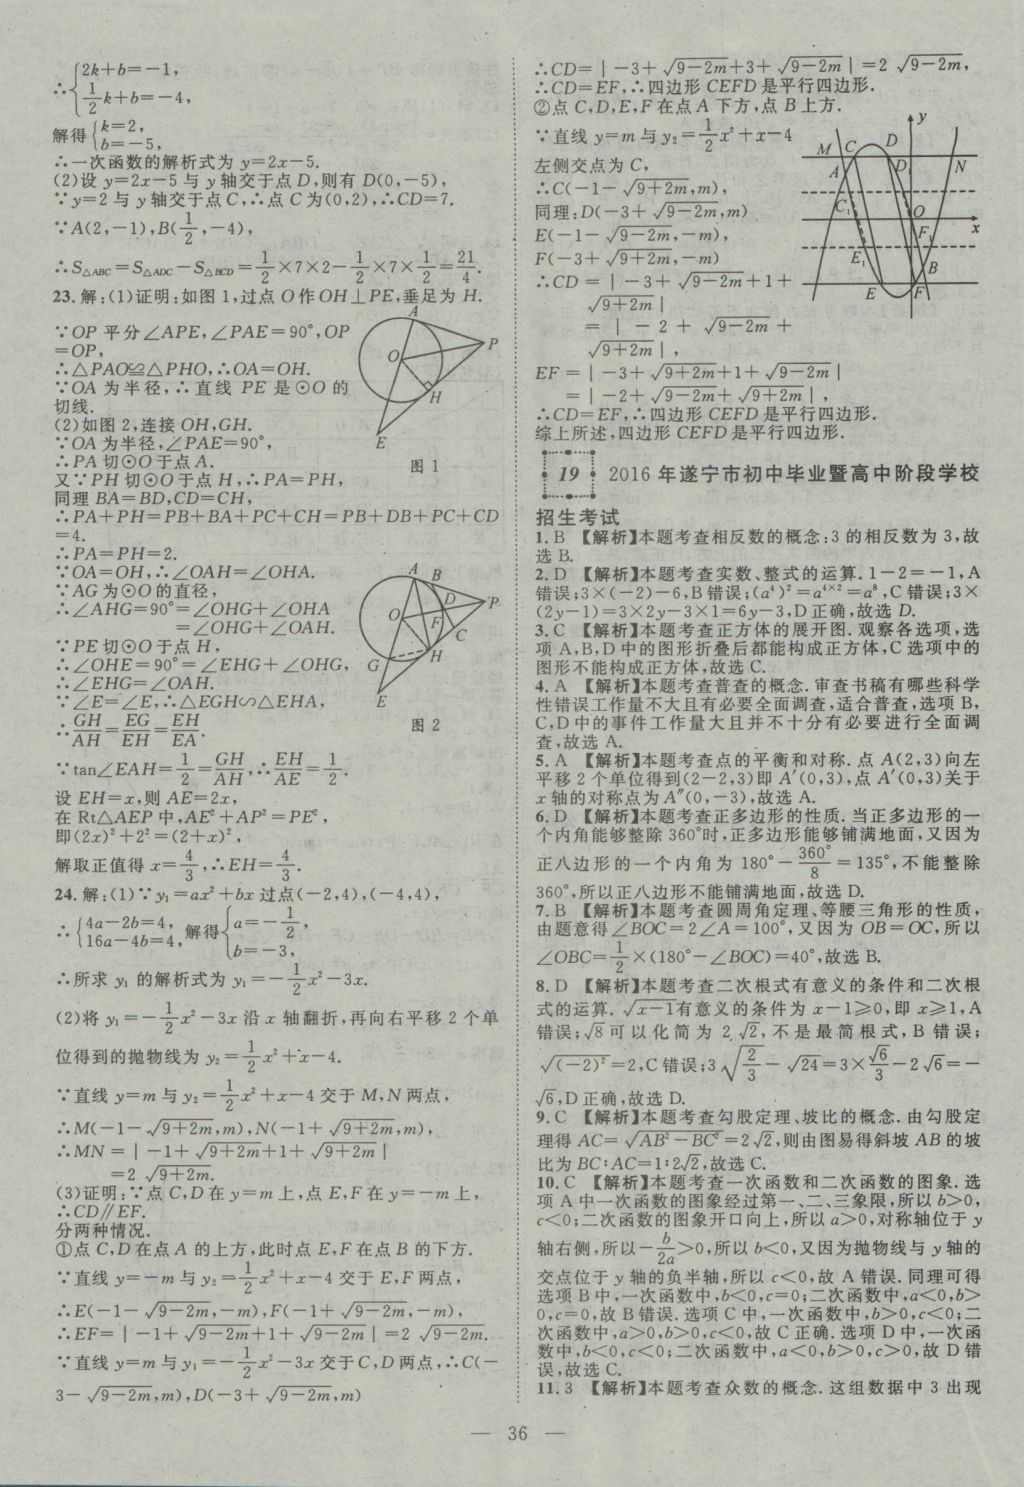 ∴{2k+b=-1,
1/2k+b=-4,
解得{k=2,
b=-5,
∴一次函数的解析式为 y=2x-5.
(2)设 y=2x-5 与 y 轴交于点 D,则有 D(0,-5),
∵y=2 与 y 轴交于点 C,∴点 C 为(0,2),∴CD=7.
∵A(2,-1),B(1/2,-4),
∴S△ABC=S△ADC-S△BCD=1/2×7×2-1/2×7×1/2=21/4.
23.解:(1)证明:如图 1,过点 O 作 OH⊥PE,垂足为 H.
∵OP 平分∠APE,∠PAE=90°,OP
=OP,
∴△PAO≌△PHO,∴OA=OH.
∵OA 为半径,∴直线 PE 是⊙O 的
切线.
A
O
P
H
E
图 1
(2)如图 2,连接 OH,GH.
∵OA 为半径,∠PAE=90°,
∴PA 切⊙O 于点 A.
又∵PH 切⊙O 于点 H,∴PA=PH,
同理 BA=BD,CD=CH,
∴PA+PH=PB+BA+PC+CH=PB+DB+PC+CD
=4.
∴PA=PH=2.
∵OA=OH,∴∠OAH=∠OHA.
∵AG 为⊙O 的直径,
∴∠AHG=90°=∠OHG+∠OHA
=∠OHG+∠OAH.
∵PE 切⊙O 于点 H,
∴∠OHE=90°=∠EHG+∠OHG,
∴∠EHG=∠OAH.
∵∠E=∠E,∴△EGH∽△EHA,
∴GH/AH=EG/EH=EH/EA.
A B
D
O
P
F
C
G
H
E
图 2
∵tan∠EAH=1/2=GH/AH,∴EH/AE=1/2.
设 EH=x,则 AE=2x,
在 Rt△AEP 中,AE²+AP²=PE²,
即(2x)²+2²=(2+x)²,
解取正值得 x=4/3,∴EH=4/3.
24.解:(1)∵y₁=ax²+bx 过点(-2,4),(-4,4),
∴{4a-2b=4,
16a-4b=4,解得{a=-1/2,
b=-3,
∴所求 y₁ 的解析式为 y₁=-1/2x²-3x.
(2)将 y₁=-1/2x²-3x 沿 x 轴翻折,再向右平移 2 个单
位得到的抛物线为 y₂=1/2x²+x-4.
∵直线 y=m 与 y₂=1/2x²+x-4 交于 M,N 两点,
∴M(-1-√(9+2m),m),N(-1+√(9+2m),m),
∴MN=|-1+√(9+2m)+1+√(9+2m)|
=2√(9+2m).
(3)证明:∵点 C,D 在 y=m 上,点 E,F 在 y=-m 上,
∴CD∥EF.
分两种情况.
①点 C,D 在点 A 的上方,此时点 E,F 在点 B 的下方.
∵直线 y=-m 与 y₂=1/2x²+x-4 交于 E,F 两点,
∴E(-1-√(9-2m),-m),F(-1+√(9-2m),-m),
∴EF=|-1+√(9-2m)+1+√(9-2m)|=2√(9-2m).
∵直线 y=m 与 y₁=-1/2x²-3x 交于 C,D 两点,∴C(-
3-√(9-2m),m),D(-3+√(9-2m),m)
∴CD=|-3+√(9-2m)+3+√(9-2m)|=2√(9-2m),
∴CD=EF,∴四边形 CEFD 是平行四边形.
②点 C,D,E,F 在点 A 下方,点 B 上方.
∵直线 y=m 与 y₂=1/2x²+x-4
左侧交点为 C,
∴C(-1-√(9+2m),m),
同理:D(-3+√(9-2m),m)
E(-1-√(9-2m),-m),
F(-3+√(9+2m),-m)
∴CD=|-3+√(9-2m)+1+
√(9+2m)|
=|-2+√(9-2m)+
√(9+2m)|,
y
M C D
A D₁ N
C₁ O
x
F₁
E₁
B
E F
EF=|-3+√(9+2m)+1+√(9-2m)|
=|-2+√(9-2m)+√(9+2m)|,
∴CD=EF,∴四边形 CEFD 是平行四边形.
综上所述,四边形 CEFD 是平行四边形.
19 2016 年遂宁市初中毕业暨高中阶段学校
招生考试
1.B 【解析】本题考查相反数的概念:3 的相反数为 3,故
选 B.
2.D 【解析】本题考查实数、整式的运算.1-2=-1,A
错误;3×(-2)-6,B 错误;(a⁴)²=a⁴ˣ²=a⁸,C 错误;3×
(2y-1)=3×2y-3×1=6y-3,D 正确,故选 D.
3.C 【解析】本题考查正方体的展开图.观察各选项,选
项 A,B,D 中的图形折叠后都能构成正方体,C 选项中的
图形不能构成正方体,故选 C.
4.A 【解析】本题考查普查的概念.审查书稿有哪些科学
性错误工作量不大且有必要全面调查,适合普查,选项 B,
C,D 中的事件工作量大且并不十分有必要进行全面调
查,故选 A.
5.A 【解析】本题考查点的平衡和对称.点 A(2,3)向左
平移 2 个单位得到(2-2,3)即 A′(0,3),点 A′(0,3)关于
x 轴的对称点为 A″(0,-3),故选 A.
6.D 【解析】本题考查正多边形的性质.当正多边形的一
个内角能够整除 360°时,正多边形能够铺满地面,又因为
正八边形的一个内角为 180°-360°/8=135°,不能整除
360°,所以正八边形不能铺满地面,故选 D.
7.B 【解析】本题考查圆周角定理、等腰三角形的性质,
由题意得∠BOC=2∠A=100°,又因为 OB=OC,所以
∠OBC=1/2×(180°-∠BOC)=40°,故选 B.
8.D 【解析】本题考查二次根式有意义的条件和二次根
式的运算.√(x-1)有意义的条件为 x-1≥0,即 x≥1,A
错误;√8可以化简为 2√2,不是最简根式,B 错误;
√(-2)²=2,C 错误;3√(2/3)-√24=3×√6/3-2√6=-
√6,D 正确,故选 D.
9.C 【解析】本题考查勾股定理、坡比的概念.由勾股定
理得 AC=√(AB²-BC²)=2√2,则由图易得斜坡 AB 的坡
比为 BC∶AC=1∶2√2,故选 C.
10.C 【解析】本题考查一次函数和二次函数的图象.选
项 A 中一次函数的图象经过第一、二、三象限,所以 b>0,
c<0;二次函数的图象开口向上,所以 a>0,对称轴位于 y
轴右侧,所以-b/2a>0,所以 b<0,又因为抛物线与 y 轴的
交点位于 y 轴的负半轴,所以 c<0,故 A 错误.同理可得
选项 B 中,一次函数中,b<0,c=0;二次函数中,a<0,b>
0,c=0,故 B 错误.选项 C 中,一次函数中,b>0,c<0;二
次函数中,a>0,b>0,c<0,故 C 正确.选项 D 中,一次函
数中,b<0,c<0;二次函数中,a<0,b>0,c>0,故 D 错
误,故选 C.
11.3 【解析】本题考查众数的概念.这组数据中 3 出现
— 36 —